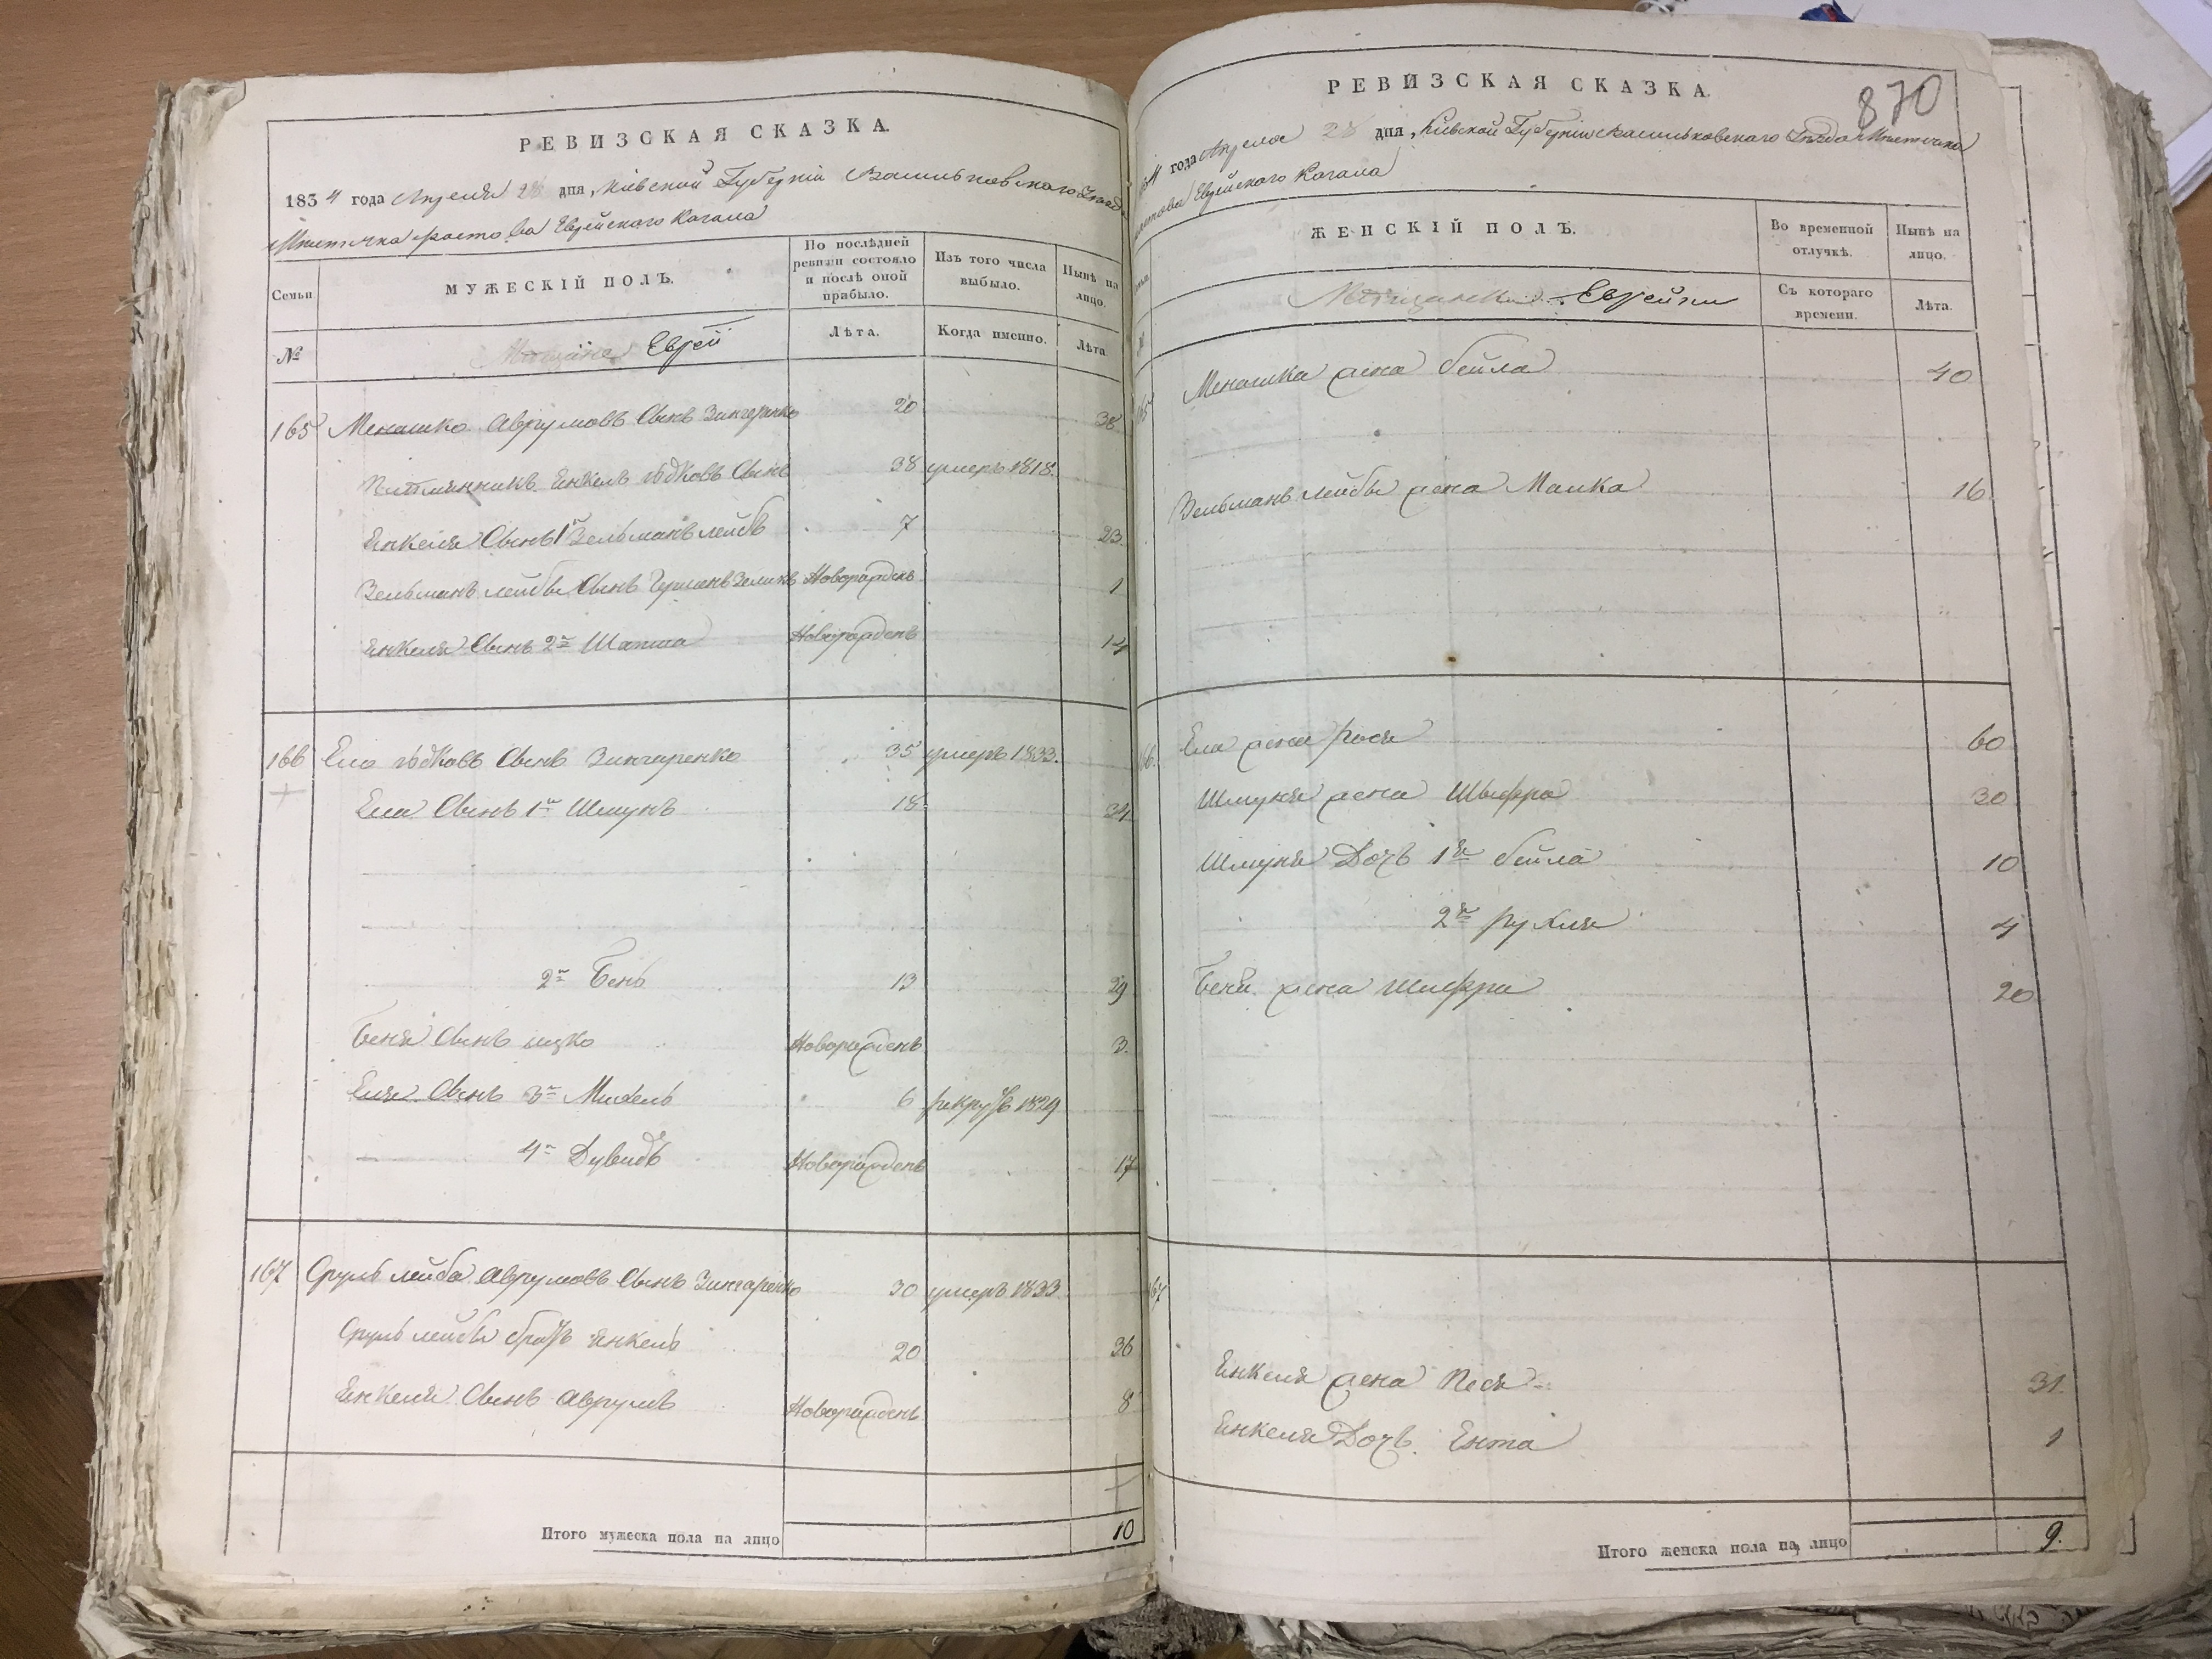 РЕВИЗСКАЯ СКАЗКА.
1834 года Апреля 28 дня, Кіевской Губерніи Васильковского Уезда
Мястечка фастова Еврейского Кагала
Семьи
МУЖЕСКІЙ ПОЛЪ.
По послѣдней ревизіи состояло и послѣ оной прибыло.
Изъ того числа выбыло.
Нынѣ на лицо.
№
Мѣщане Евреи
Лѣта.
Когда именно.
Лѣта
165 Менашко Аврумовъ Сынъ Зингаренко 20 38
Племянникъ Енкель Юдковъ Сынъ 38 умеръ 1818.
Енкеля Сынъ 1й Зельманъ лейбъ 7 23
Зельманъ лейбы Сынъ Гершенъ Зеликъ Новорожденъ 1
Енкеля Сынъ 2й Шапша Новорожденъ 14
166 Ело Юдковъ Сынъ Зингаренко 35 умеръ 1833.
Ела Сынъ 1й Шмунь 18 34
2й Бень 13 29
Беня Сынъ ицко Новорожденъ 3.
Еля Сынъ 3й Михель 6 рекрутъ 1829
4й Дувидъ Новорожденъ 17
167 Сруль лейба Аврумовъ Сынъ Зингаренко 30 умеръ 1833
Сруль лейбы братъ Енкель 20 36
Енкеля Сынъ Аврумъ Новорожденъ 8
Итого мужеска пола на лицо 10
870
РЕВИЗСКАЯ СКАЗКА.
года Апреля 28 дня, Кіевской Губерніи Васильковского Уезда Мястечка
Еврейского Кагала
ЖЕНСКІЙ ПОЛЪ.
Во временной отлучкѣ.
Нынѣ на лицо.
Мѣщанки Еврейки
Съ котораго времени.
Лѣта.
165 Менашка жена бейла 40
Зельманъ лейбы жена Малка 16
Ела жена рося 60
Шмуня жена Шыфра 30
Шмуня Дочь 1я бейла 10
2я рухля 4
Беня жена шифра 20
167
Енкеля жена Песя 31.
Енкеля Дочь Ента 1
Итого женска пола на лицо 9.